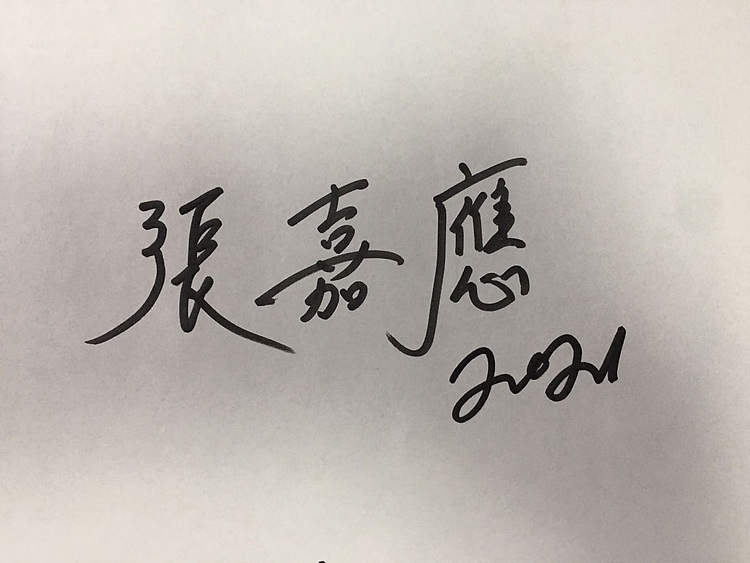 張嘉應
2021